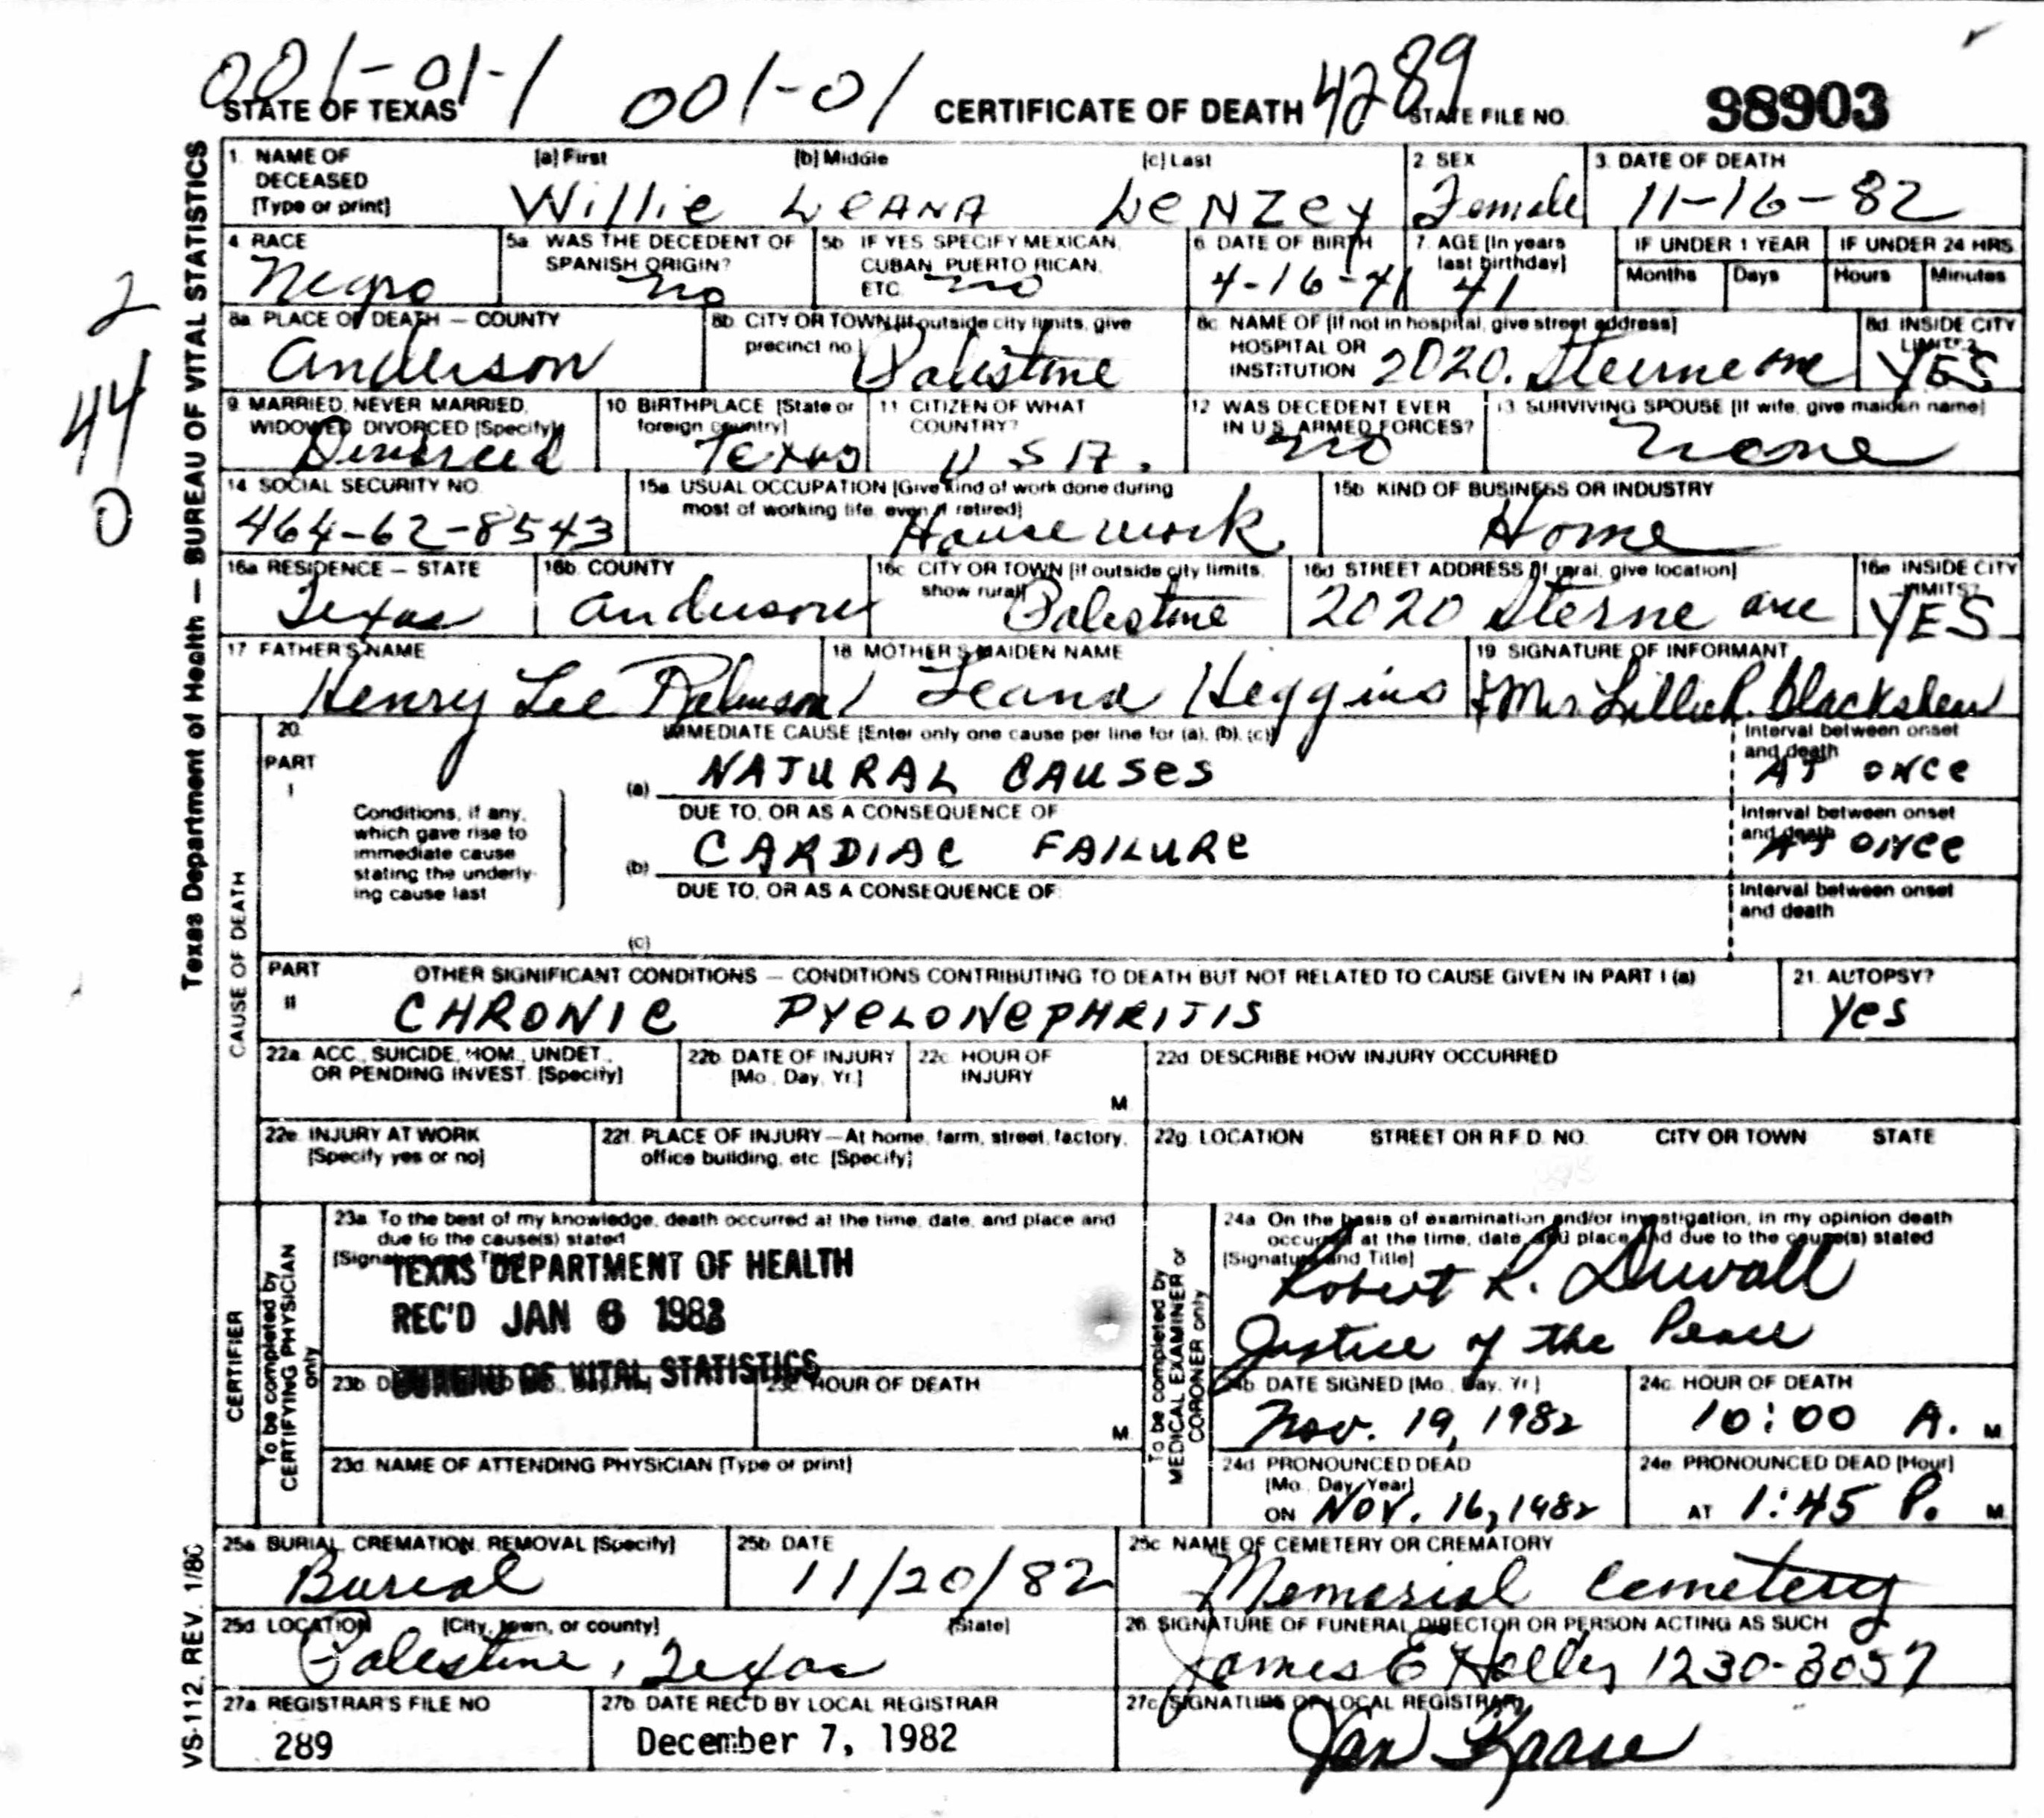 001-01-1 001-01 4289
STATE OF TEXAS CERTIFICATE OF DEATH STATE FILE NO. 98903
Texas Department of Health — BUREAU OF VITAL STATISTICS
2
44
0
1. NAME OF DECEASED [Type or print] (a) First (b) Middle (c) Last
Willie LEANA LENZEY
2 SEX
Female
3. DATE OF DEATH
11-16-82
4 RACE
Negro
5a WAS THE DECEDENT OF SPANISH ORIGIN?
no
5b IF YES SPECIFY MEXICAN, CUBAN, PUERTO RICAN, ETC
no
6 DATE OF BIRTH
4-16-41
7. AGE [In years last birthday]
41
IF UNDER 1 YEAR
Months Days
IF UNDER 24 HRS.
Hours Minutes
8a PLACE OF DEATH — COUNTY
Anderson
8b CITY OR TOWN [If outside city limits, give precinct no]
Palestine
8c NAME OF [If not in hospital, give street address] HOSPITAL OR INSTITUTION
2020.
8d. INSIDE CITY LIMITS?
YES
9 MARRIED, NEVER MARRIED, WIDOWED, DIVORCED [Specify]
Divorced
10 BIRTHPLACE [State or foreign country]
Texas
11 CITIZEN OF WHAT COUNTRY?
U S A.
12 WAS DECEDENT EVER IN U.S. ARMED FORCES?
no
13 SURVIVING SPOUSE [If wife, give maiden name]
none
14 SOCIAL SECURITY NO.
464-62-8543
15a USUAL OCCUPATION [Give kind of work done during most of working life, even if retired]
House work
15b KIND OF BUSINESS OR INDUSTRY
Home
16a RESIDENCE — STATE
Texas
16b. COUNTY
Anderson
16c CITY OR TOWN [If outside city limits, show rural]
Palestine
16d STREET ADDRESS [If rural, give location]
2020 Sterne ave
16e INSIDE CITY LIMITS?
YES
17 FATHER'S NAME
Henry Lee Robinson
18 MOTHER'S MAIDEN NAME
Leana Heggins
19 SIGNATURE OF INFORMANT
Mrs. Lillie R. Blackshear
CAUSE OF DEATH
20.
PART I
IMMEDIATE CAUSE [Enter only one cause per line for (a), (b), (c)]
Conditions, if any, which gave rise to immediate cause stating the underlying cause last
(a) NATURAL CAUSES
Interval between onset and death
AT ONCE
DUE TO, OR AS A CONSEQUENCE OF
(b) CARDIAC FAILURE
Interval between onset and death
AT ONCE
DUE TO, OR AS A CONSEQUENCE OF:
(c)
Interval between onset and death
PART II
OTHER SIGNIFICANT CONDITIONS — CONDITIONS CONTRIBUTING TO DEATH BUT NOT RELATED TO CAUSE GIVEN IN PART I (a)
CHRONIC PYELONEPHRITIS
21. AUTOPSY?
Yes
22a. ACC., SUICIDE, HOM., UNDET., OR PENDING INVEST. [Specify]
22b. DATE OF INJURY [Mo., Day, Yr.]
22c. HOUR OF INJURY
M
22d DESCRIBE HOW INJURY OCCURRED
22e. INJURY AT WORK [Specify yes or no]
22f. PLACE OF INJURY—At home, farm, street, factory, office building, etc [Specify]
22g. LOCATION STREET OR R.F.D. NO. CITY OR TOWN STATE
CERTIFIER
To be completed by CERTIFYING PHYSICIAN only
23a To the best of my knowledge, death occurred at the time, date, and place and due to the cause(s) stated
TEXAS DEPARTMENT OF HEALTH
REC'D JAN 6 1983
BUREAU OF VITAL STATISTICS
23b
23c HOUR OF DEATH
M
23d. NAME OF ATTENDING PHYSICIAN [Type or print]
To be completed by MEDICAL EXAMINER or CORONER only
24a On the basis of examination and/or investigation, in my opinion death occurred at the time, date, and place and due to the cause(s) stated
[Signature and Title]
Robert R. Duvall
Justice of the Peace
24b DATE SIGNED [Mo., Day, Yr.]
Nov. 19, 1982
24c HOUR OF DEATH
10:00 A. M
24d PRONOUNCED DEAD [Mo., Day, Year]
ON NOV. 16, 1982
24e. PRONOUNCED DEAD [Hour]
AT 1:45 P. M
25a. BURIAL, CREMATION, REMOVAL [Specify]
Burial
25b. DATE
11/20/82
25c NAME OF CEMETERY OR CREMATORY
Memorial Cemetery
25d. LOCATION [City, town, or county] [State]
Palestine, Texas
26. SIGNATURE OF FUNERAL DIRECTOR OR PERSON ACTING AS SUCH
James E Holley 1230-3057
27a REGISTRAR'S FILE NO
289
27b. DATE REC'D BY LOCAL REGISTRAR
December 7, 1982
27c SIGNATURE OF LOCAL REGISTRAR
Jan Kaase
VS-112, REV. 1/80